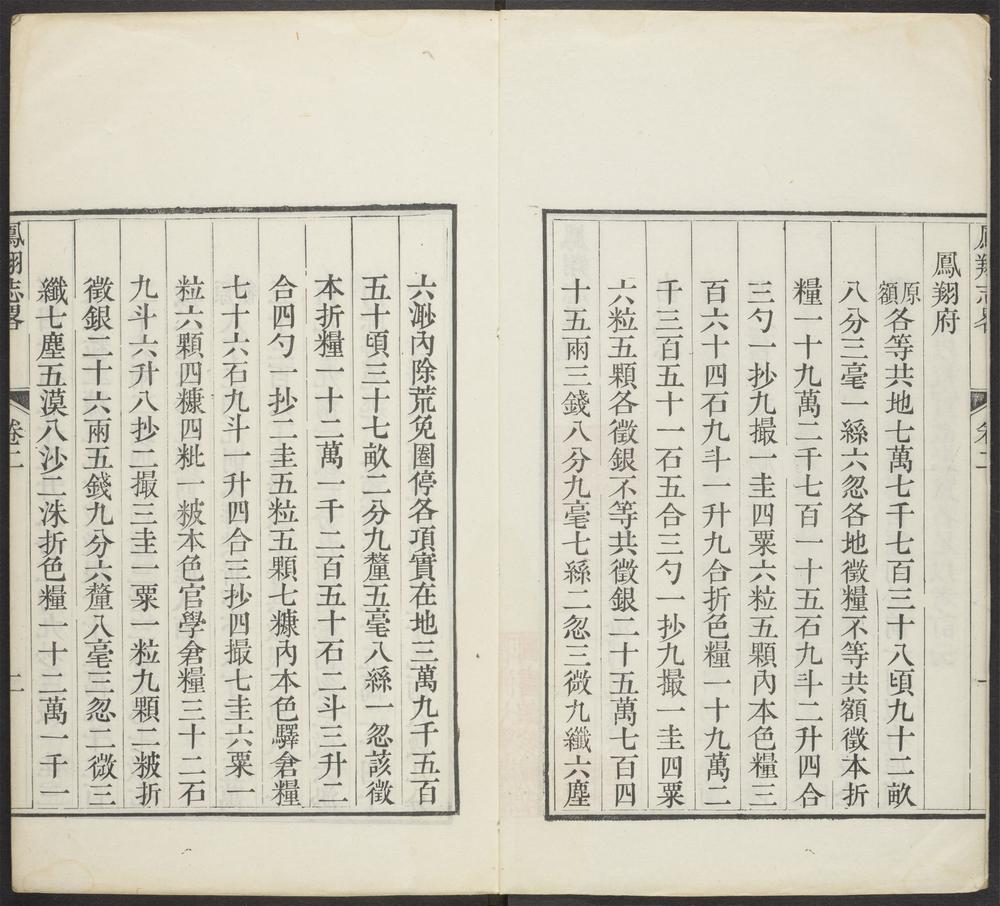 鳳翔志畧
卷二
一
鳳翔府
原額各等共地七萬七千七百三十八頃九十二畝
八分三毫一絲六忽各地徵糧不等共額徵本折
糧一十九萬二千七百一十五石九斗二升四合
三勺一抄九撮一圭四粟六粒五顆內本色糧三
百六十四石九斗一升九合折色糧一十九萬二
千三百五十一石五合三勺一抄九撮一圭四粟
六粒五顆各徵銀不等共徵銀二十五萬七百四
十五兩三錢八分九毫七絲二忽三微九纖六塵
六渺內除荒免圈停各項實在地三萬九千五百
五十頃三十七畝二分九釐五毫八絲一忽該徵
本折糧一十二萬一千二百五十石二斗三升二
合四勺一抄二圭五粒五顆七糠內本色驛倉糧
七十六石九斗一升四合三抄四撮七圭六粟一
粒六顆四糠四粃一粰本色官學倉糧三十二石
九斗六升八抄二撮三圭一粟一粒九顆二粰折
徵銀二十六兩五錢九分六釐八毫三忽二微三
纖七塵五漠八沙二洙折色糧一十二萬一千一
鳳翔志畧
卷二
二